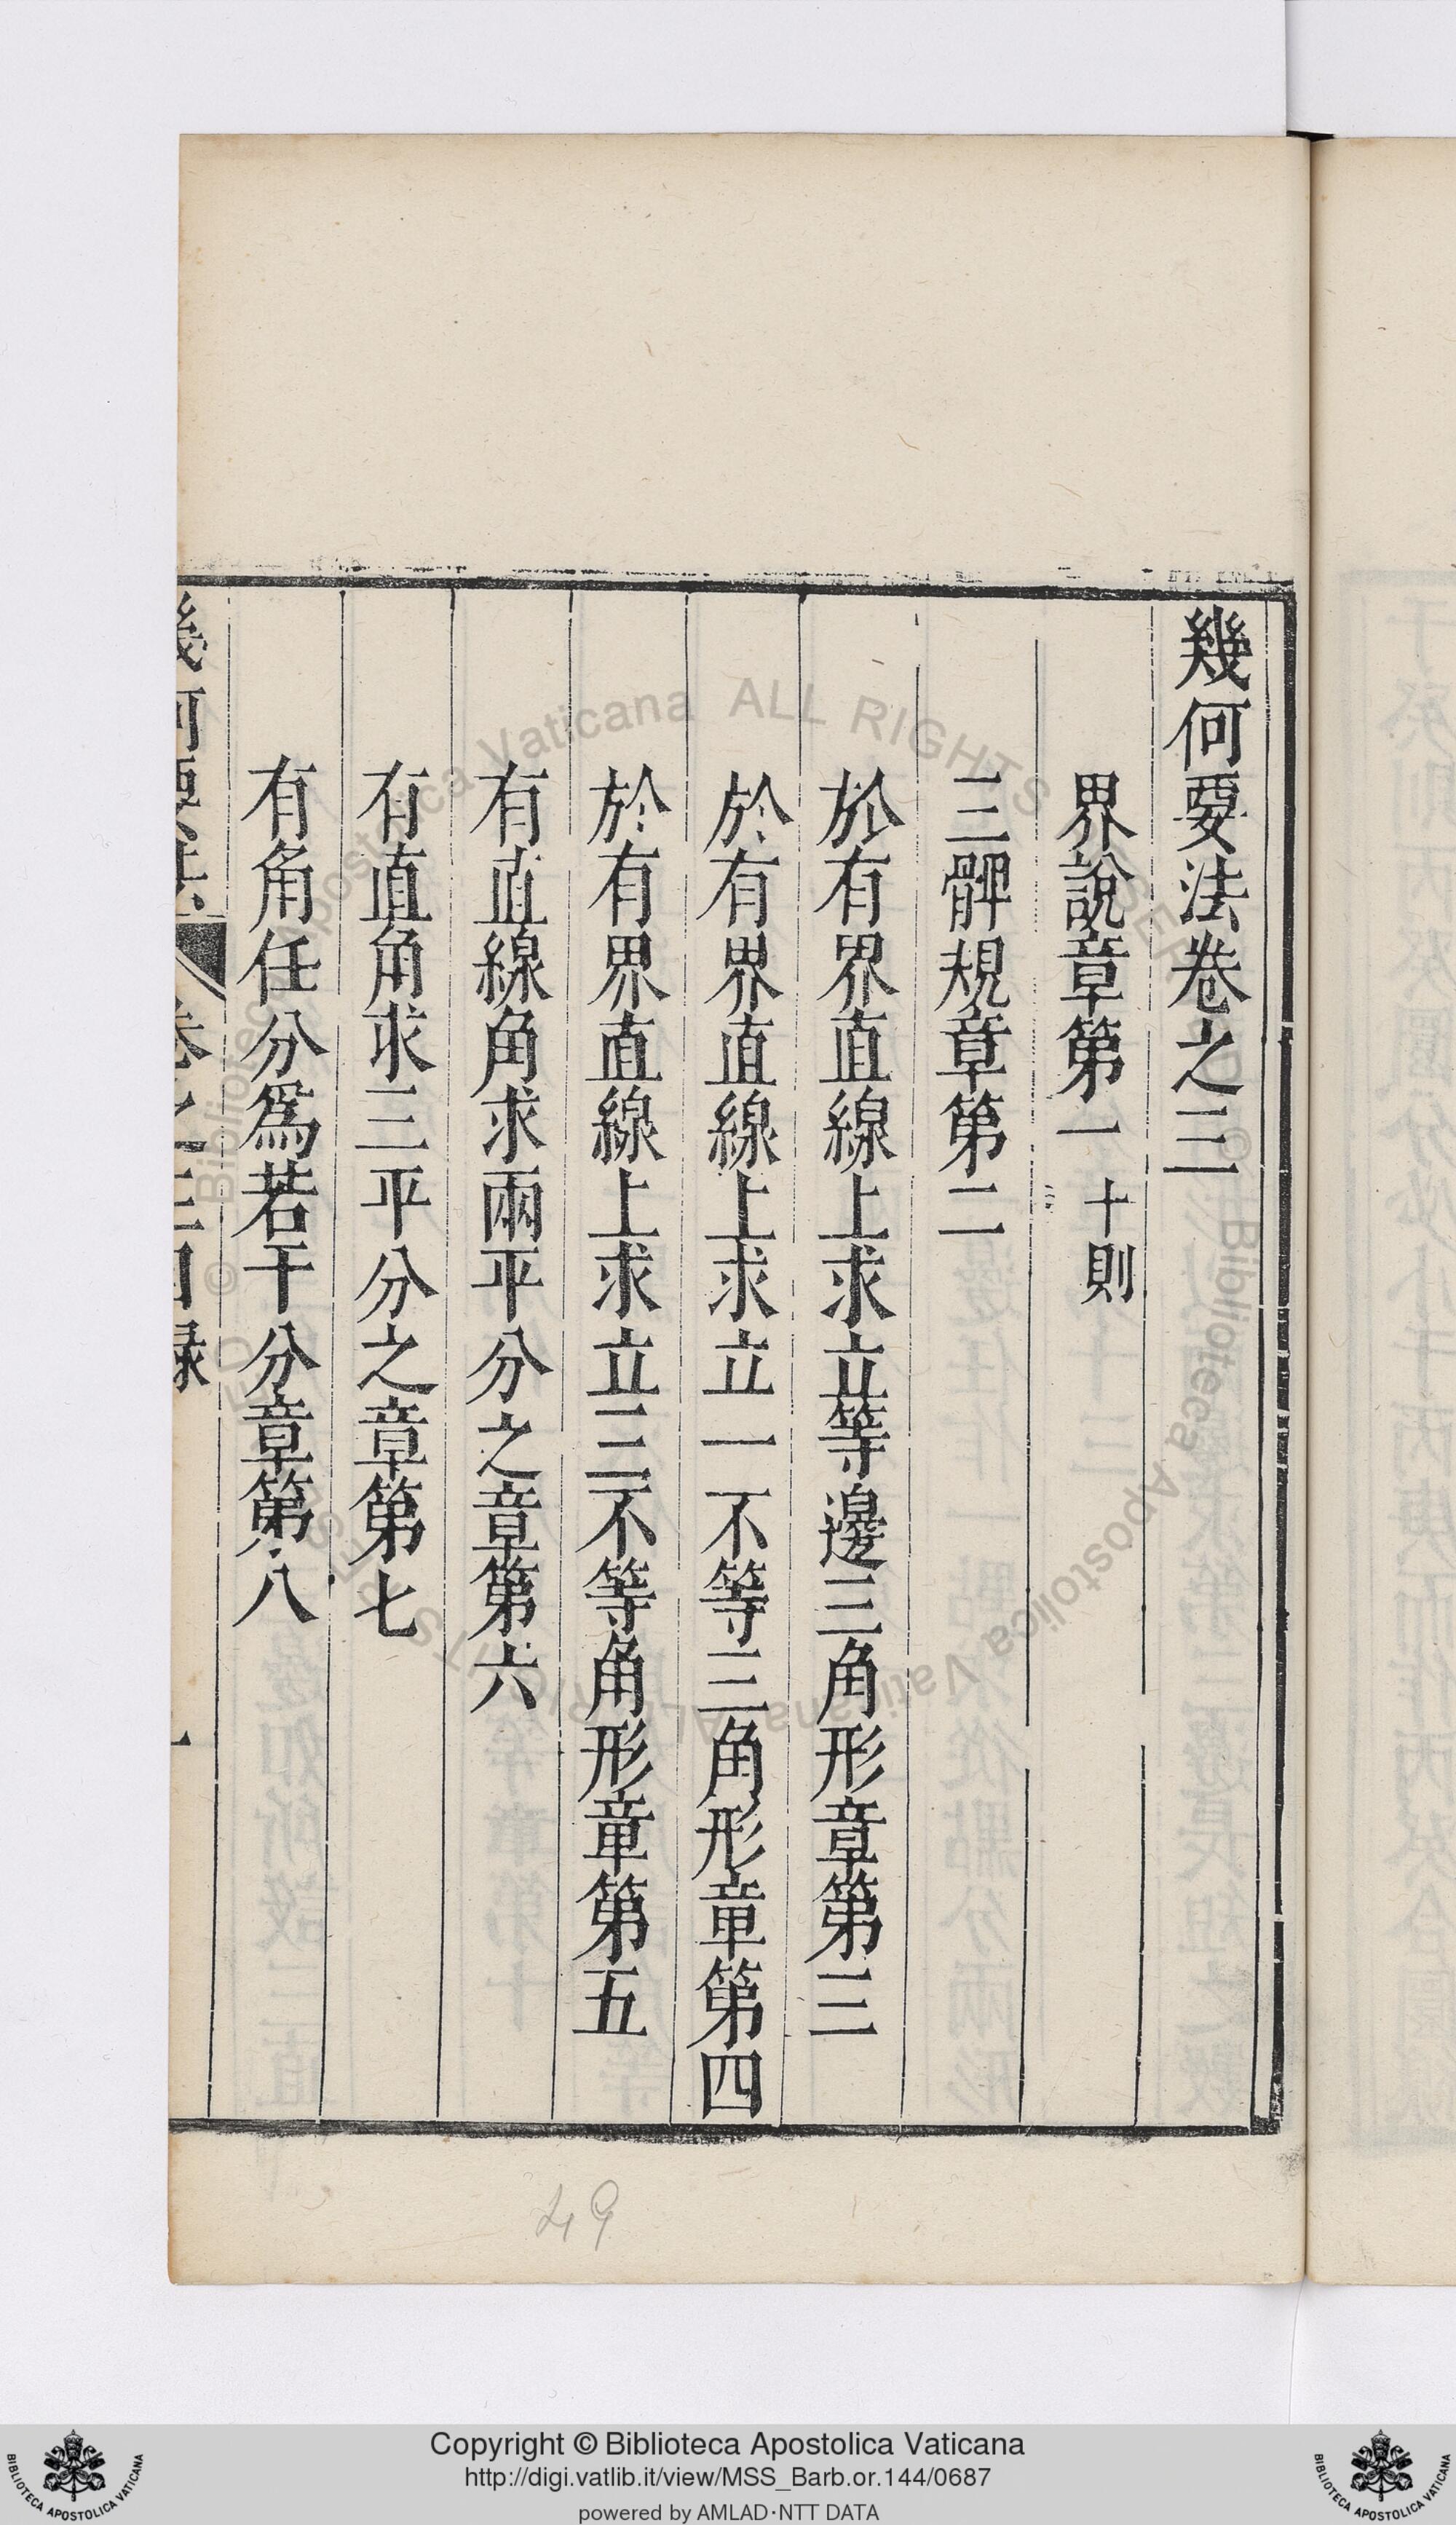 幾何要法卷之三
界說章第一 十則
三髀規章第二
於有界直線上求立等邊三角形章第三
於有界直線上求立一不等三角形章第四
於有界直線上求立三不等角形章第五
有直線角求兩平分之章第六
有直角求三平分之章第七
有角任分爲若干分章第八
幾何要法 卷之三目錄 一
49
Copyright © Biblioteca Apostolica Vaticana
http://digi.vatlib.it/view/MSS_Barb.or.144/0687
powered by AMLAD·NTT DATA
BIBLIOTECA APOSTOLICA VATICANA
BIBLIOTECA APOSTOLICA VATICANA